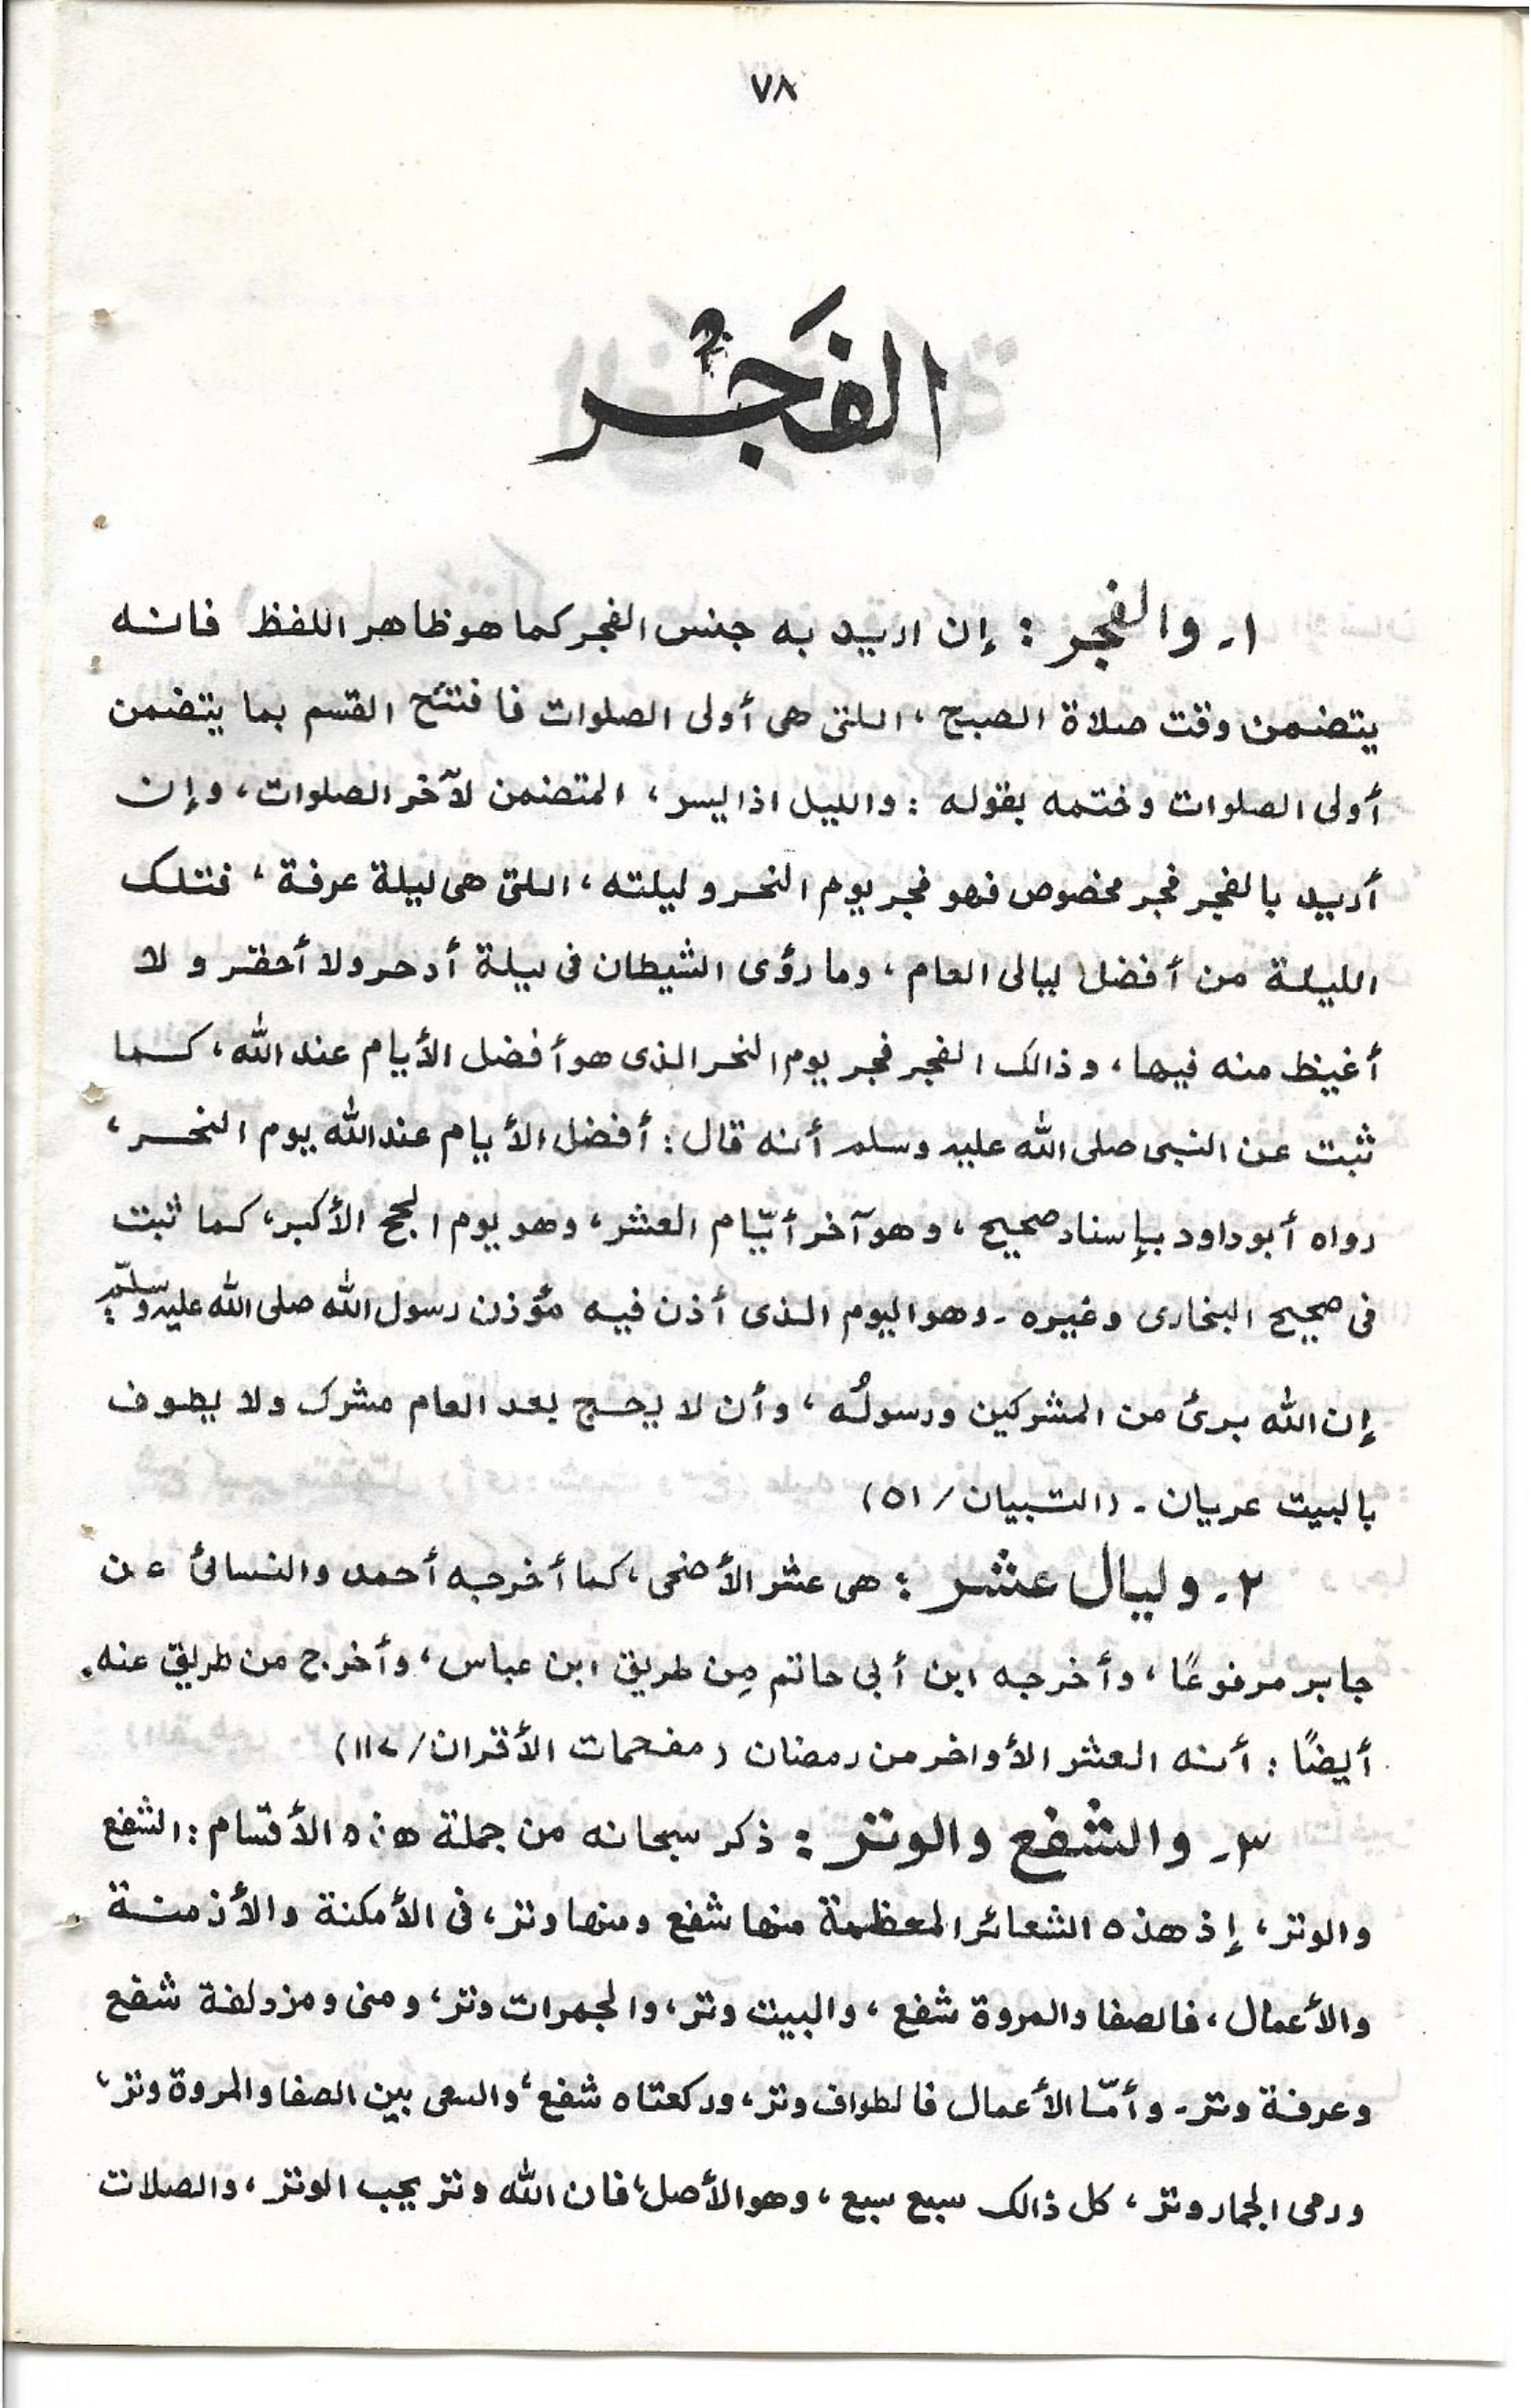 ٧٨
الفَجْر
١ـ والفجر : إن اريد به جنس الفجر كما هو ظاهر اللفظ فانه
يتضمن وقت صلاة الصبح ، اللتى هى أولى الصلوات فافتتح القسم بما يتضمن
أولى الصلوات وختمه بقوله : والليل اذا يسر ، المتضمن لآخر الصلوات ، وإن
أريد بالفجر فجر مخصوص فهو فجر يوم النحر و ليلته ، اللتى هى ليلة عرفة ، فتلك
الليلة من أفضل ليالى العام ، وما رؤى الشيطان فى ليلة أدحر ولا أحقر و لا
أغيظ منه فيها ، و ذالك الفجر فجر يوم النحر الذى هو أفضل الأيام عند الله ، كما
ثبت عن النبى صلى الله عليه وسلم أنه قال : أفضل الأيام عند الله يوم النحر ،
رواه أبو داود بإسناد صحيح ، و هو آخر أيّام العشر ، وهو يوم الحج الأكبر ، كما ثبت
فى صحيح البخارى وغيره ـ وهو اليوم الذى أذن فيه مؤذن رسول الله صلى الله عليه وسلّم :
إن الله برئ من المشركين ورسولُه ، وأن لا يحج بعد العام مشرك ولا يطوف
بالبيت عريان ـ (التبيان / ٥١)
٢ـ وليال عشر : هى عشر الأضحى ، كما أخرجه أحمد والنسائ عن
جابر مرفوعًا ، وأخرجه ابن أبى حاتم مِن طريق ابن عباس ، وأخرج من طريق عنه
أيضًا : أنه العشر الأواخر من رمضان (مفحمات الأقران / ١١٧)
٣ـ والشفع والوتر : ذكر سبحانه من جملة هذه الأقسام : الشفع
والوتر ، إذ هذه الشعائر المعظمة منها شفع ومنها وتر ، فى الأمكنة والأزمنة
والأعمال ، فالصفا والمروة شفع ، والبيت وتر ، والجمرات وتر ، ومنى ومزدلفة شفع
وعرفة وتر ـ وأمّا الأعمال فالطواف وتر ، وركعتاه شفع ، والسعى بين الصفا والمروة وتر ،
ورمى الجمار وتر ، كل ذالك سبع سبع ، وهو الأصل ، فان الله وتر يحب الوتر ، والصلات